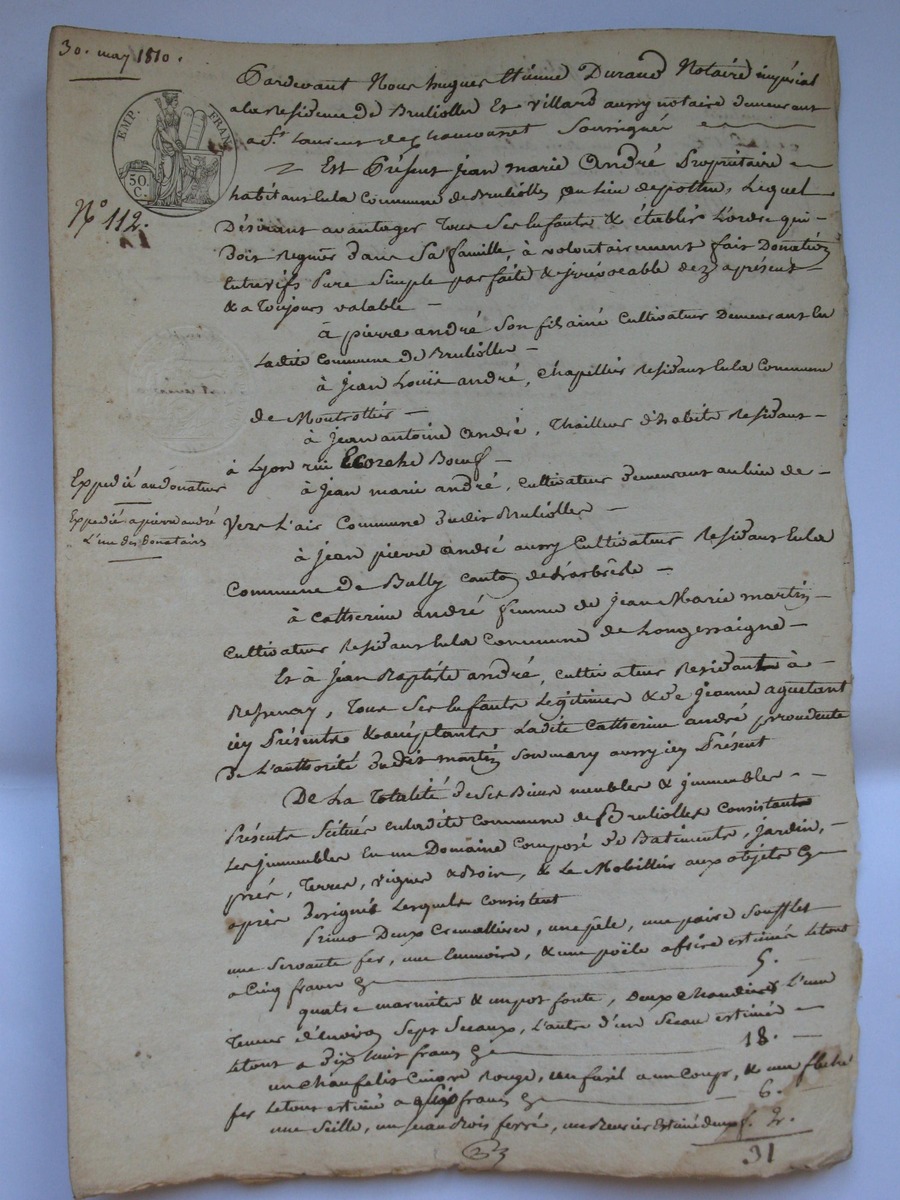 30. may 1810.
EMP. FRAN.
50. C.
N° 112.
Pardevant Nous hugues Etienne Durand Notaire impérial
a la residence de Brullioles Et Villard aussy notaire demeurant
a St. Laurent de Chamousset Soussignés
Est Présent jean marie André Propriétaire
habitant en la Commune de Brullioles au lieu de pottin, Lequel
Désirant avantager Tous Ses Enfants & établir L'ordre qui
Doit regner dans Sa famille, à volontairement fait Donation
Entrevifs Pure Simple parfaite & irrévocable dez a présent
& a Toujours valable
à pierre andré Son fils ainé Cultivateur Demeurant En
Ladite Commune de Brullioles
à Jean Louïs andré, Chapellier Résidant En la Commune
de Montrottier
à Jean antoine André, Thailleur d'habits Residant
à Lyon rue Ecorche Boeuf
à Jean marie andré, Cultivateur demeurant au lieu de
Vers L'air Commune dudit Brullioles
à Jean pierre andré aussy Cultivateur Résidant En la
Commune de Bully Canton de L'arbresle
à Catherine andré femme de Jean Marie martin
Cultivateur Résidant En la Commune de Longessaigne
Et à Jean Baptiste andré, cultivateur Residant à
, Tous Ses Enfants Légitimes & de Jeanne aguetant
icy Présents & acceptants Ladite Catherine andré procedente
De L'authorité dudit martin Son mary aussy icy Présent
De La Totalité de Ses Biens meubles & immeubles
Présents Scitués en Ladite Commune de Brullioles Consistants
Les immeubles En un Domaine Composé de Batiments, jardin,
prés, Terres, vignes & Bois, & Le Mobillier aux objets Cy
après Designés Lesquels Consistent
Primo Deux Cremallieres, une pêle, une paire Soufflet
une Servante fer, une, & une poële a frire estimés Le tout
a Cinq francs Cy 5.
quatre marmites & un pot fonte, Deux Chaudieres L'une
Teneur d'Environ Sept Seaux, L'autre d'un Seau estimés
Le tout a Dix huit francs Cy 18.
un Chaufelit Cuivre Rouge, un fusil a un Coup, & une fleche
fer Le tout estimé a Six francs Cy 6.
une Seille, un ferré, estimé deux f. 2.
31
Expedié au Donateur
Expedié a pierre andré
L'un des Donataires